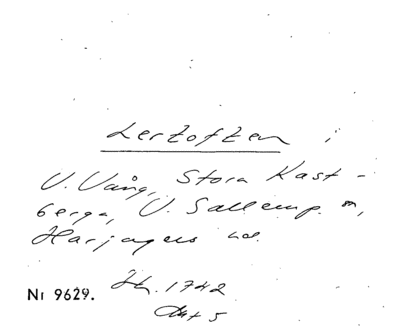 Lertoften i
V. Vång, Stora Kast-
berga, V. Sallerup sn,
Harjagers hd.
Nr 9629. Jh. 1742
Akt 5